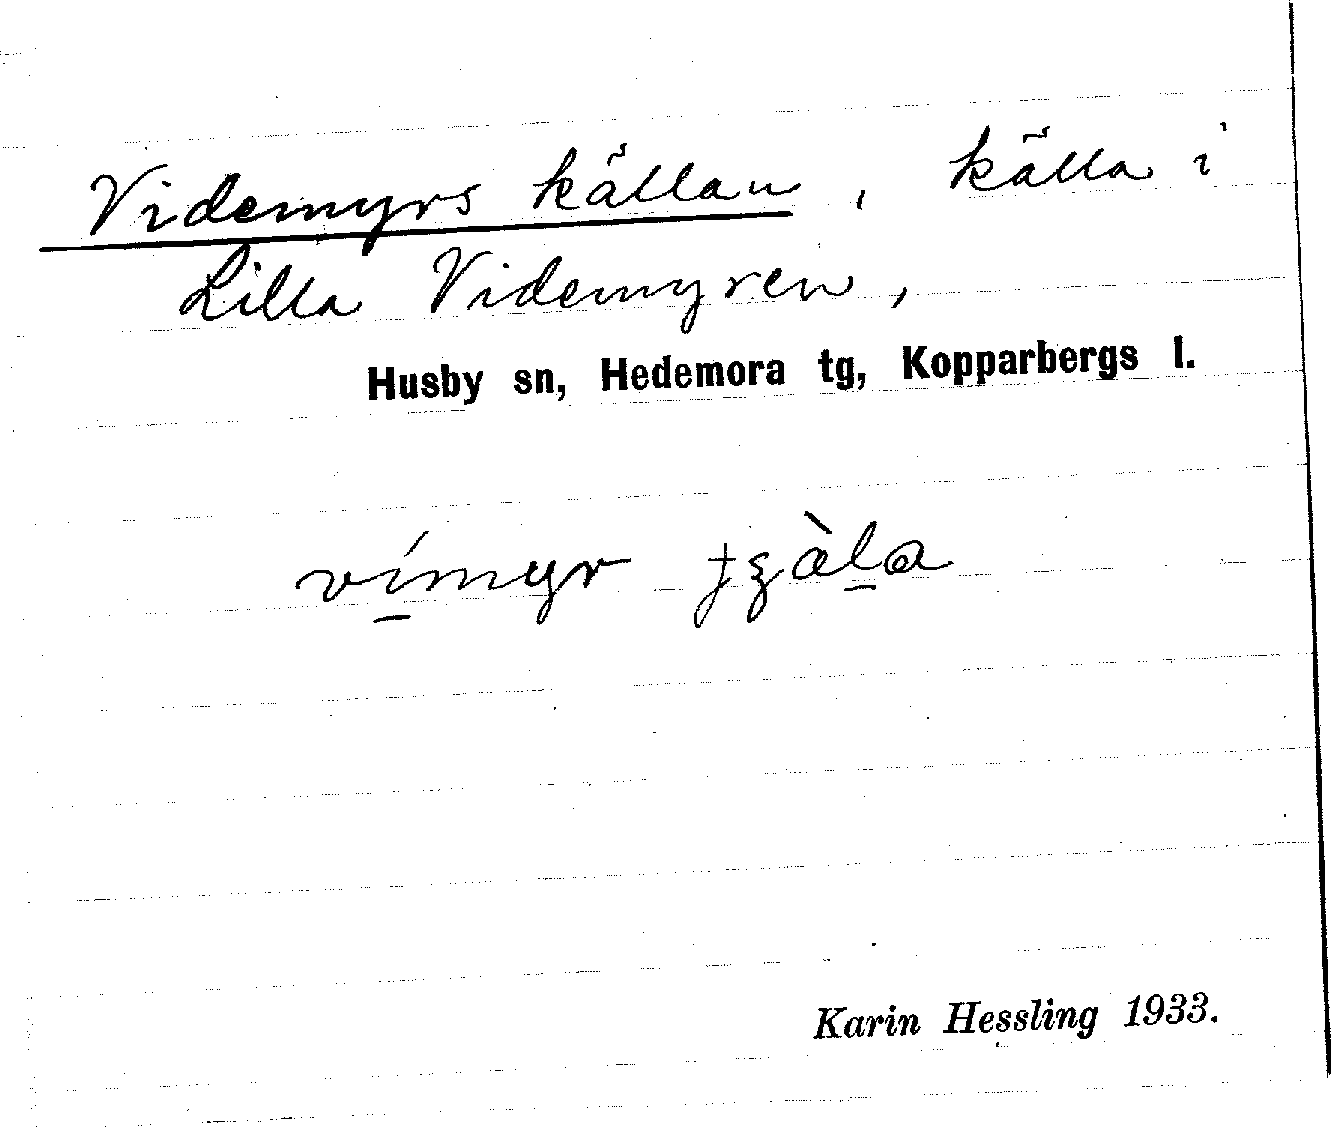 Videmyrs källan, källa i
Lilla Videmyren,
Husby sn, Hedemora tg, Kopparbergs l.
vímyr
Karin Hessling 1933.